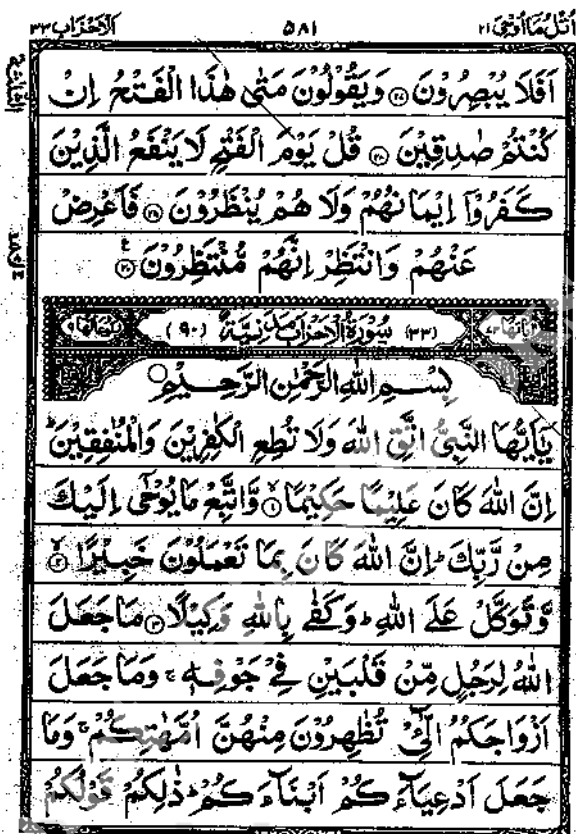 اُتْلُ مَا اُوْحِیَ ۲۱ ۵۸۱ اَلْاَحْزَاب ۳۳
اَفَلَا یُبْصِرُوْنَ ۝۲۷ وَیَقُوْلُوْنَ مَتٰی هٰذَا الْفَتْحُ اِنْ
كُنْتُمْ صٰدِقِیْنَ ۝۲۸ قُلْ یَوْمَ الْفَتْحِ لَا یَنْفَعُ الَّذِیْنَ
كَفَرُوْۤا اِیْمَانُهُمْ وَلَا هُمْ یُنْظَرُوْنَ ۝۲۹ فَاَعْرِضْ
عَنْهُمْ وَانْتَظِرْ اِنَّهُمْ مُّنْتَظِرُوْنَ ۝۳۰
اٰیَاتُهَا ۷۳ (۳۳) سُوْرَةُ الْاَحْزَابِ مَدَنِیَّةٌ (۹۰) رُكُوْعَاتُهَا ۹
بِسْمِ اللّٰهِ الرَّحْمٰنِ الرَّحِیْمِ
یٰۤاَیُّهَا النَّبِیُّ اتَّقِ اللّٰهَ وَلَا تُطِعِ الْكٰفِرِیْنَ وَالْمُنٰفِقِیْنَ ؕ
اِنَّ اللّٰهَ كَانَ عَلِیْمًا حَكِیْمًا ۝۱ وَّاتَّبِعْ مَا یُوْحٰۤی اِلَیْكَ
مِنْ رَّبِّكَ ؕ اِنَّ اللّٰهَ كَانَ بِمَا تَعْمَلُوْنَ خَبِیْرًا ۝۲
وَّتَوَكَّلْ عَلَی اللّٰهِ ؕ وَكَفٰی بِاللّٰهِ وَكِیْلًا ۝۳ مَا جَعَلَ
اللّٰهُ لِرَجُلٍ مِّنْ قَلْبَیْنِ فِیْ جَوْفِهٖ ۚ وَمَا جَعَلَ
اَزْوَاجَكُمُ الّٰٓـِٔیْ تُظٰهِرُوْنَ مِنْهُنَّ اُمَّهٰتِكُمْ ۚ وَمَا
جَعَلَ اَدْعِیَآءَكُمْ اَبْنَآءَكُمْ ؕ ذٰلِكُمْ قَوْلُكُمْ